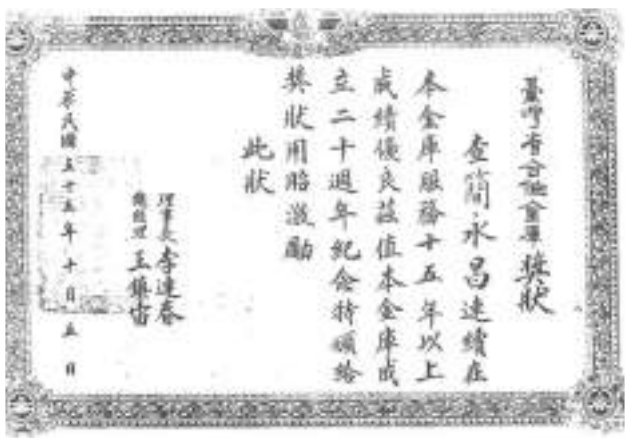 臺灣省合作金庫獎狀
查簡永昌連續在
本金庫服務十五年以上
成績優良茲值本金庫成
立二十週年紀念特頒給
獎狀用昭激勵
此狀
理事長李連春
總經理王鎮宙
中華民國五十五年十月五日